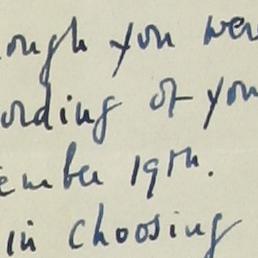 ough you wer
ording of you
ember 19th.
in choosing